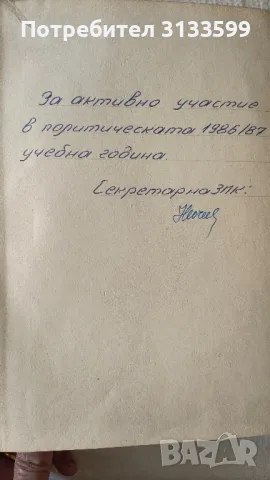 Потребител 3133599
За активно участие
в политическата 1986/87
учебна година.
Секретар на ЗПК:
bazar